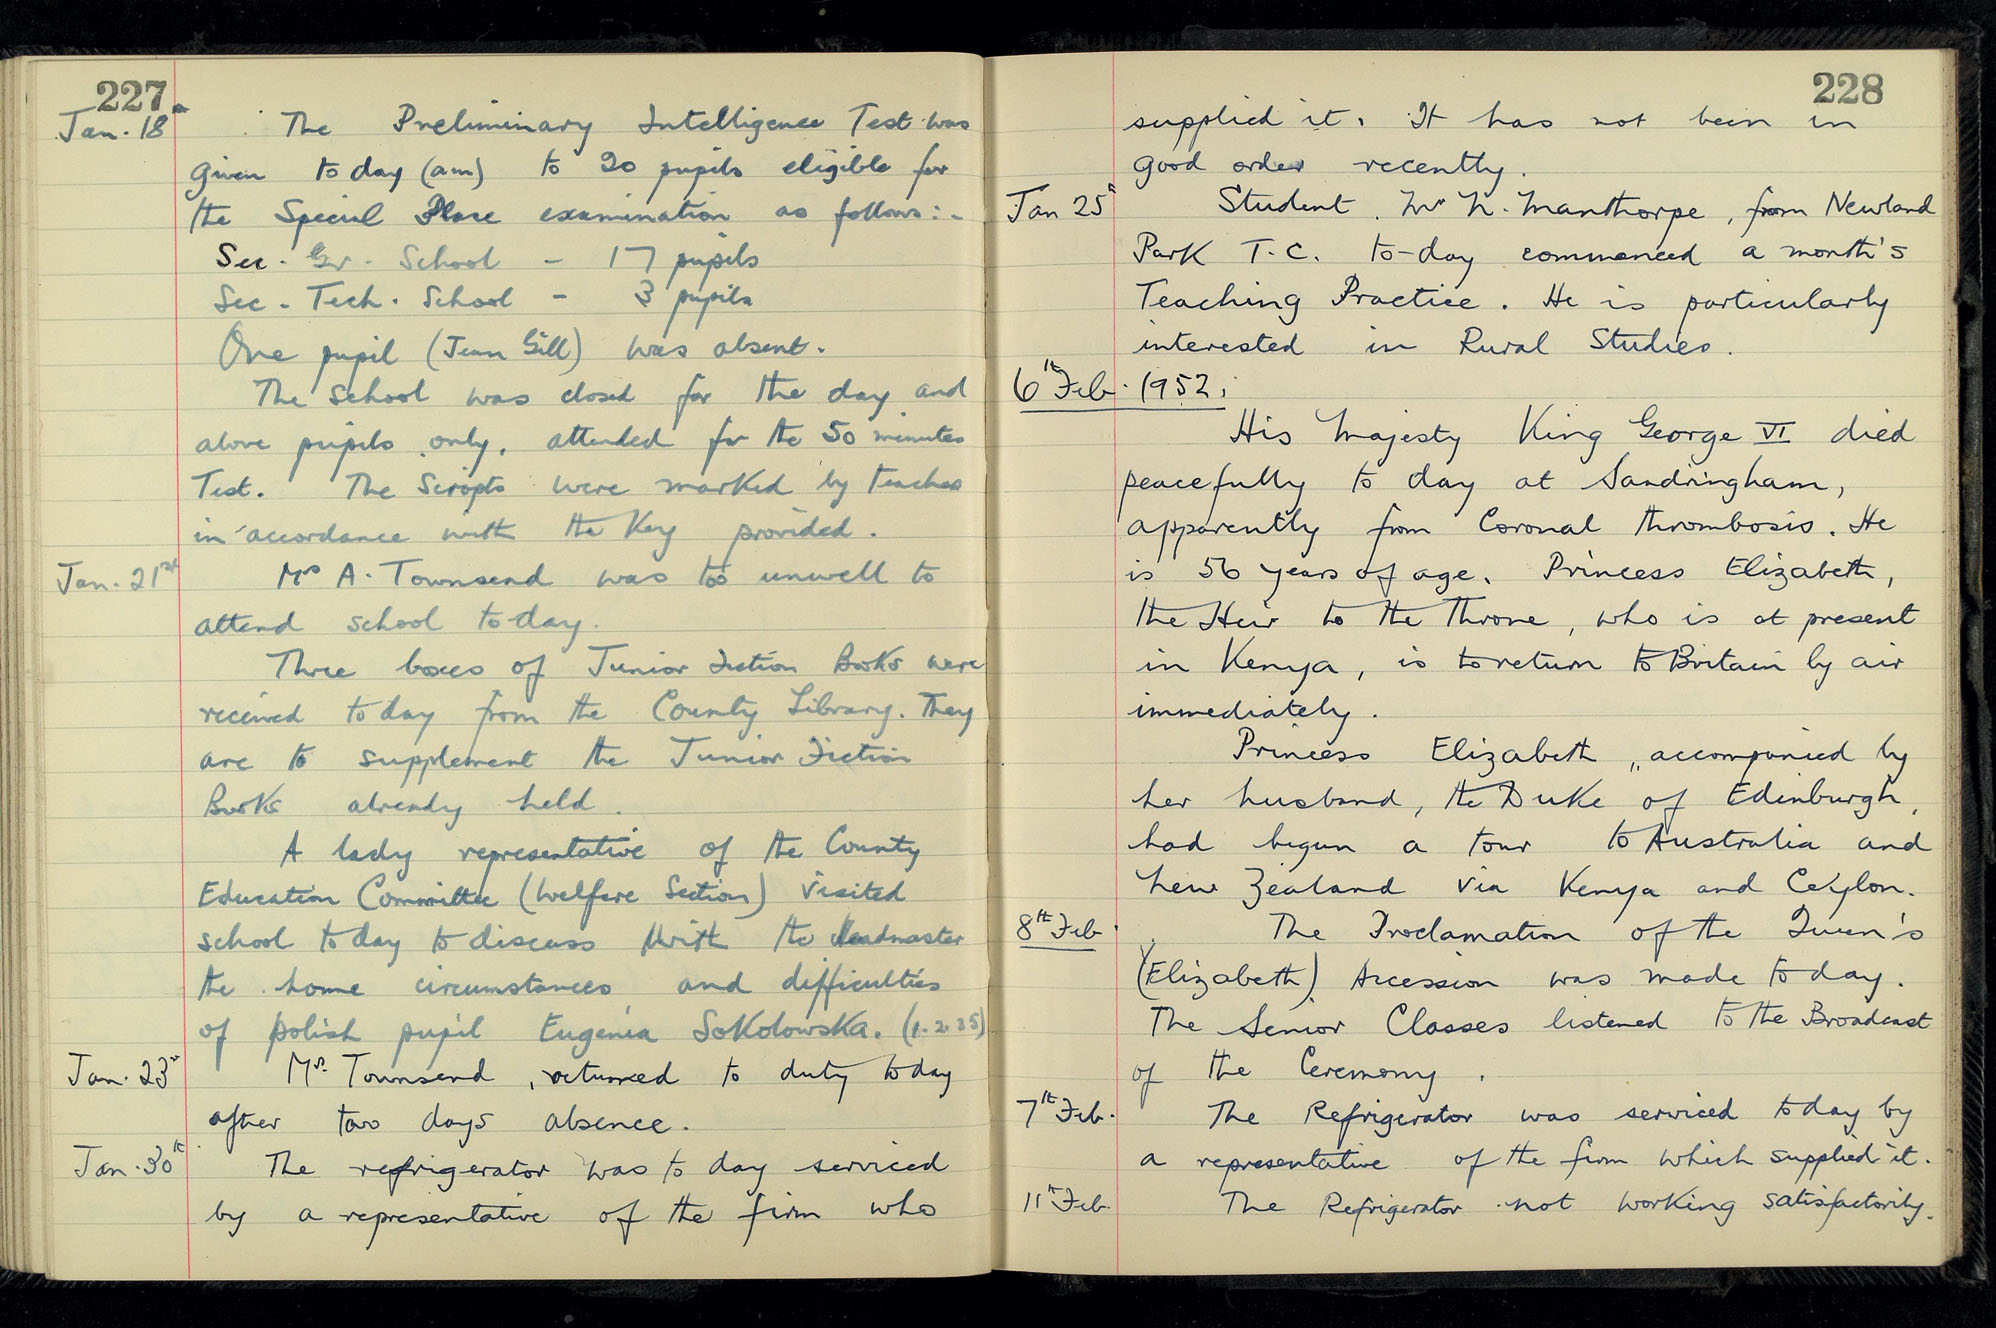 227
Jan. 18th The Preliminary Intelligence Test was
given to day (am) to 20 pupils eligible for
the Special Place examination as follows:-
Sec. Gr. School - 17 pupils
Sec. Tech. School - 3 pupils
One pupil (Jean Gill) was absent.
The school was closed for the day and
above pupils only, attended for the 50 minutes
Test. The Scripts were marked by teachers
in accordance with the Key provided.
Jan. 21st Mrs A. Townsend was too unwell to
attend school to-day.
Three boxes of Junior Fiction Books were
received today from the County Library. They
are to supplement the Junior Fiction
Books already held.
A lady representative of the County
Education Committee (Welfare Section) visited
school today to discuss with the Headmaster
the home circumstances and difficulties
of polish pupil Eugenia Sokolowska. (1.2.35)
Jan. 23rd Mrs. Townsend, returned to duty today
after two days absence.
Jan. 30th The refrigerator was to day serviced
by a representative of the firm who
228
supplied it. It has not been in
good order recently.
Jan 25th Student. Mr N. Manthorpe, from Newland
Park T.C. to-day commenced a month's
Teaching Practice. He is particularly
interested in Rural Studies.
6th Feb. 1952.
His Majesty King George VI died
peacefully to day at Sandringham,
apparently from Coronal thrombosis. He
is 56 years of age. Princess Elizabeth,
the Heir to the Throne, who is at present
in Kenya, is to return to Britain by air
immediately.
Princess Elizabeth, accompanied by
her husband, the Duke of Edinburgh,
had begun a tour to Australia and
New Zealand via Kenya and Ceylon.
8th Feb. The Proclamation of the Queen's
(Elizabeth) Accession was made today.
The Senior Classes listened to the Broadcast
of the Ceremony.
7th Feb. The Refrigerator was serviced today by
a representative of the firm which supplied it.
11th Feb. The Refrigerator not working satisfactorily.